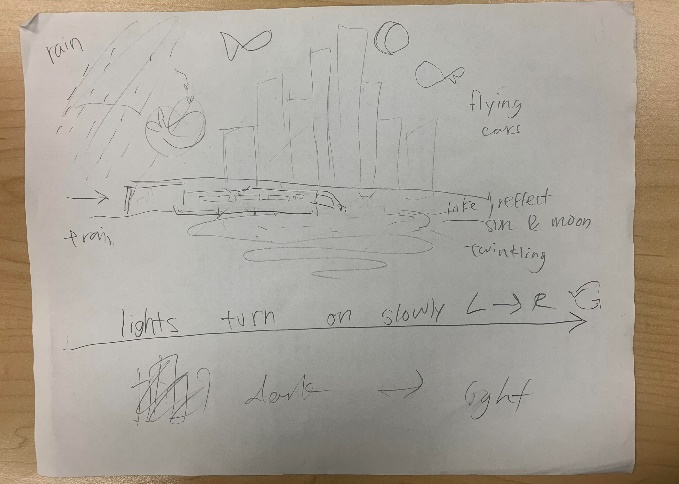 rain
flying
cars
train
lake
reflect
sun & moon
twinkling
lights turn on slowly L → R
dark → light